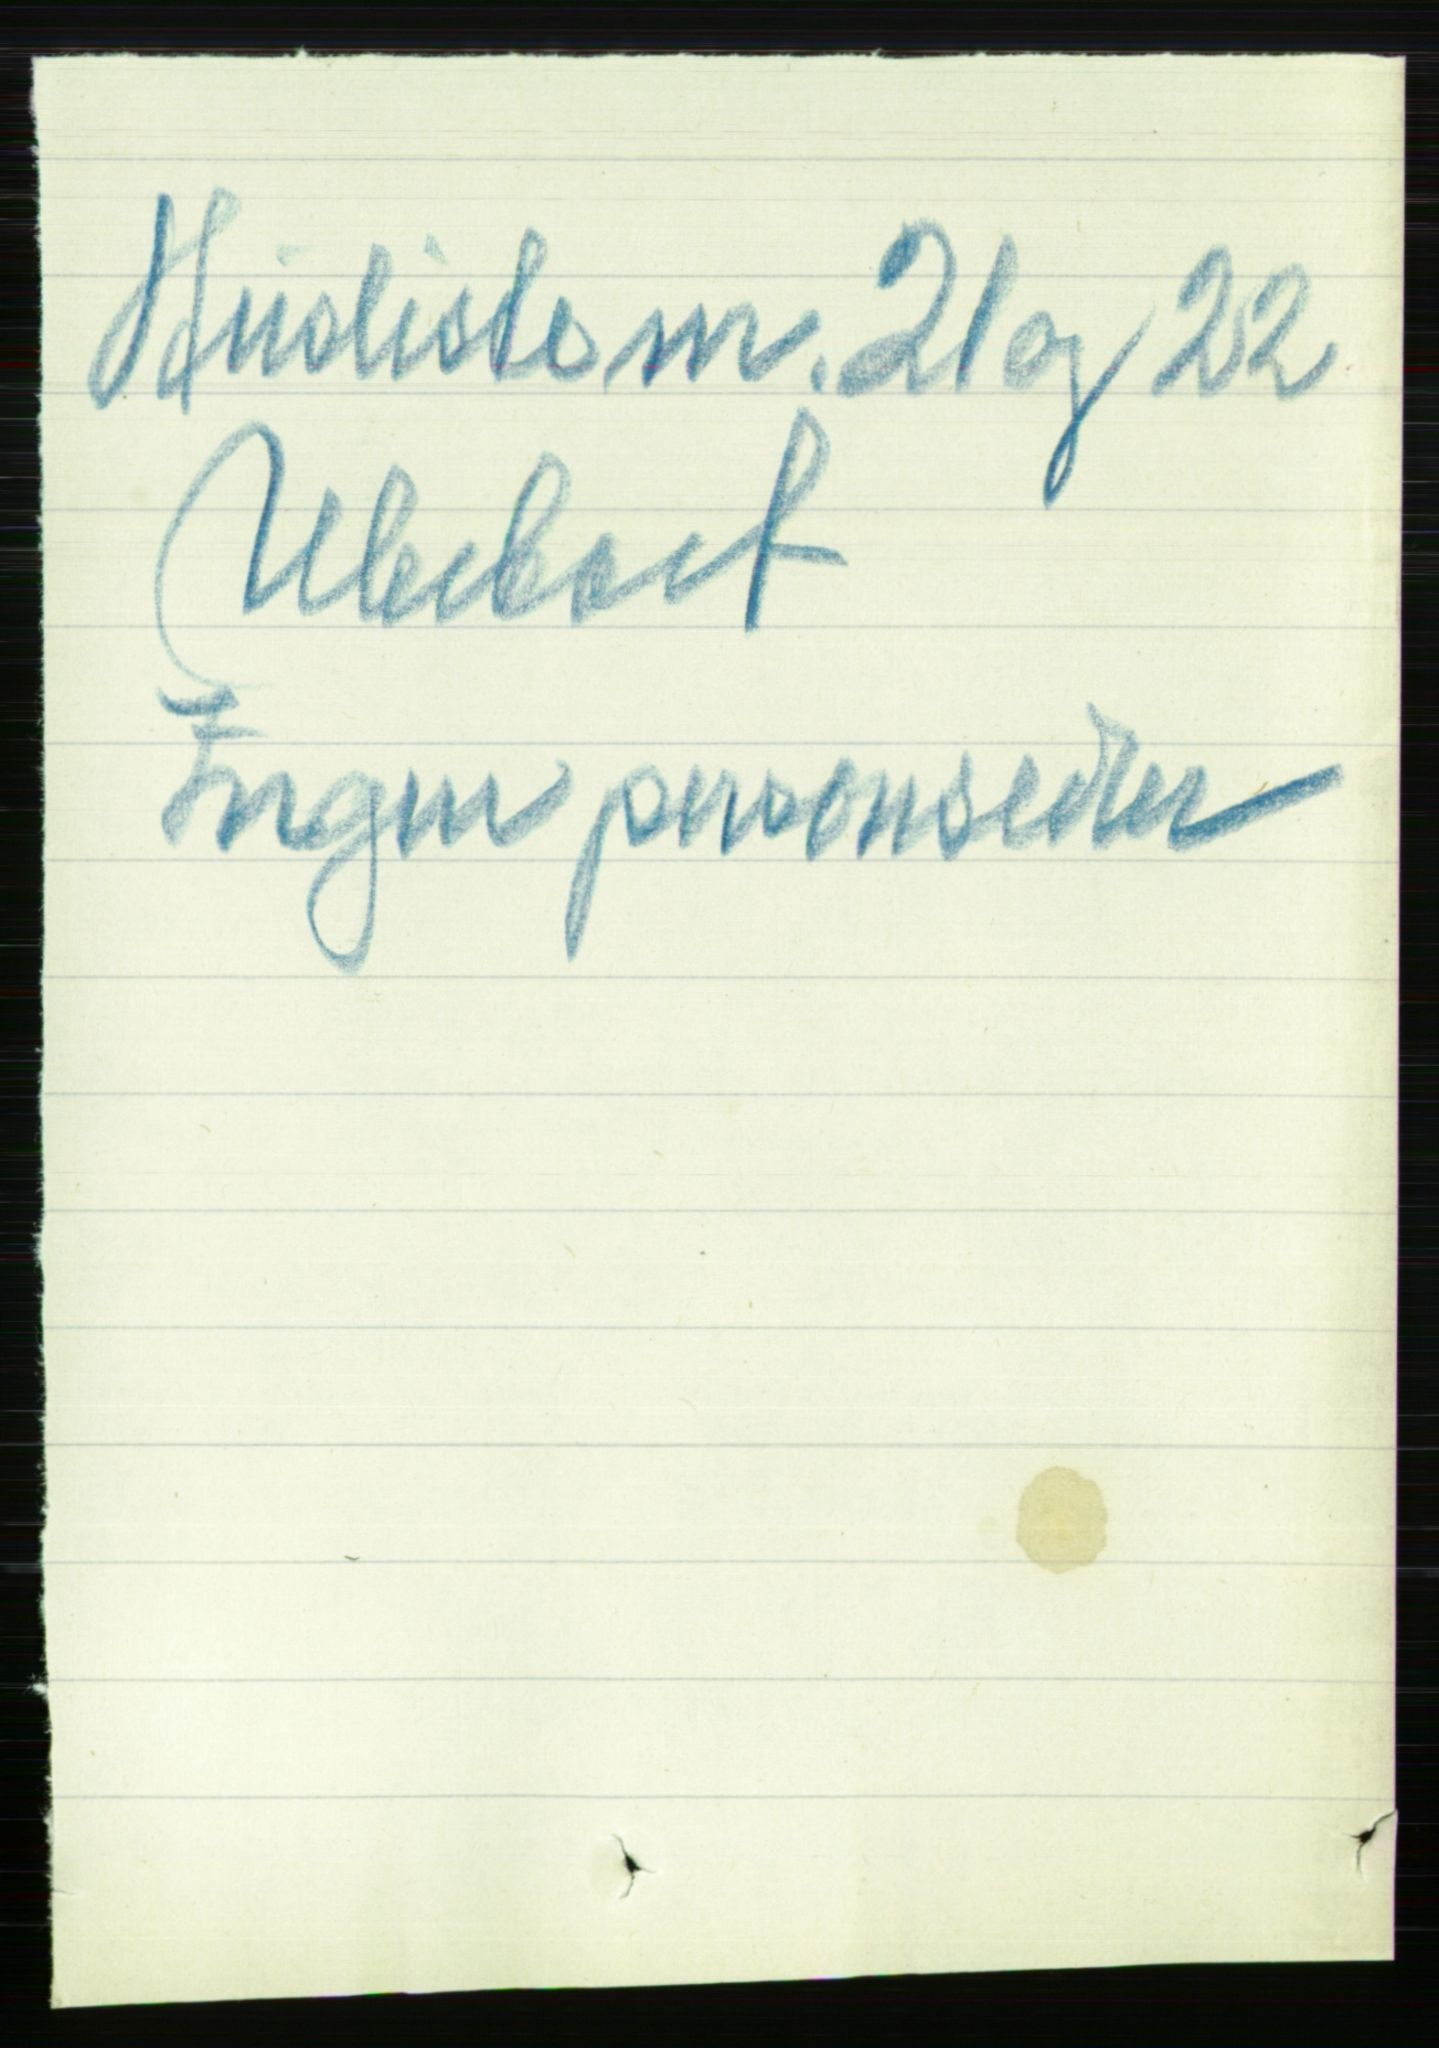 Husliste nr. 21 og 22
Ubeboet
Ingen personsedler